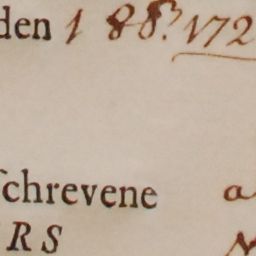 den 1 8b? 172
ſchrevene a
RS